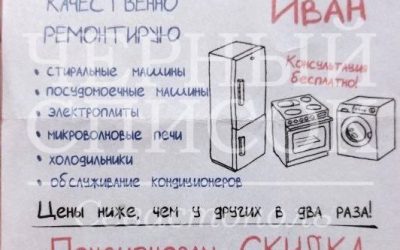 КАЧЕСТВЕННО
РЕМОНТИРУЮ
ИВАН
Консультация
бесплатно!
• СТИРАЛЬНЫЕ МАШИНЫ
• ПОСУДОМОЕЧНЫЕ МАШИНЫ
• ЭЛЕКТРОПЛИТЫ
• МИКРОВОЛНОВЫЕ ПЕЧИ
• ХОЛОДИЛЬНИКИ
• ОБСЛУЖИВАНИЕ КОНДИЦИОНЕРОВ
ЧЕРНЫЙ
СПИСОК
Севастополь
Цены ниже, чем у других в два раза!
СКИДКА